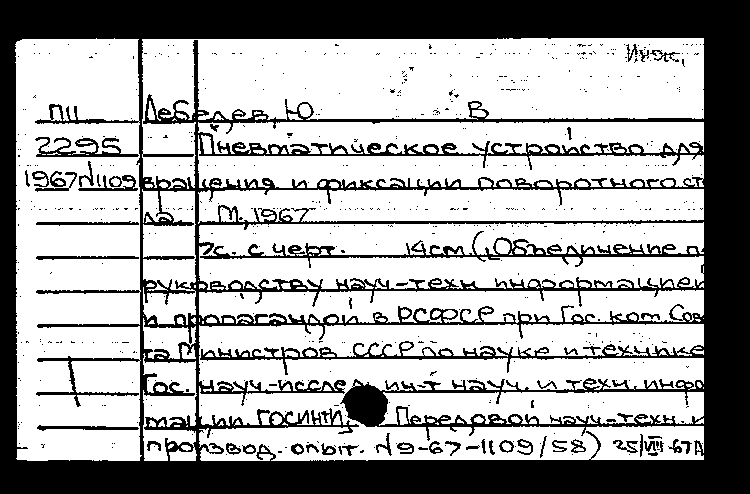 Инж.
ПII Лебедев, Ю В
2295 Пневматическое устройство для
1967 N1109 вращения и фиксации поворотного ст
ла. М, 1967
7с. с черт. 14см (Объединение п
руководству науч-техн информацией
и пропагандой в РСФСР при Гос. ком. Сов
та Министров СССР по науке и технике
Гос. науч.-исслед ин-т науч. и техн. инфо
мации. ГОСИНТИ. Передовой науч-техн. и
производ. опыт. N9-67-1109/58) 25/VIII-67